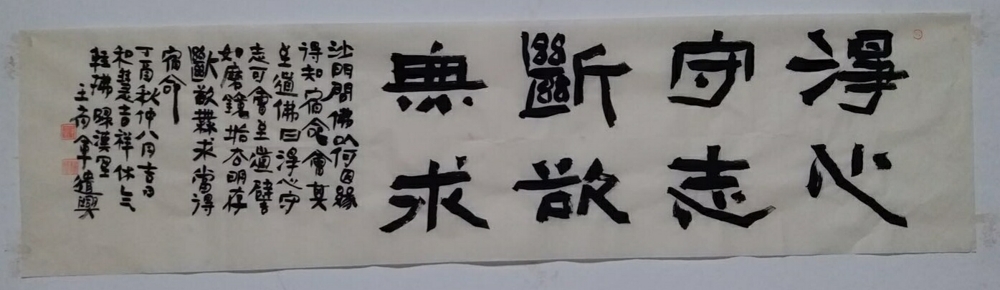 淨心
守志
斷欲
無求
沙門問佛以何因緣
得知宿命會其
至道佛曰淨心守
志可會至道譬
如磨鏡垢去明存
斷欲無求當得
宿命
丁酉秋仲八月吉日
和慧吉祥
輕拂
王南軍遣興